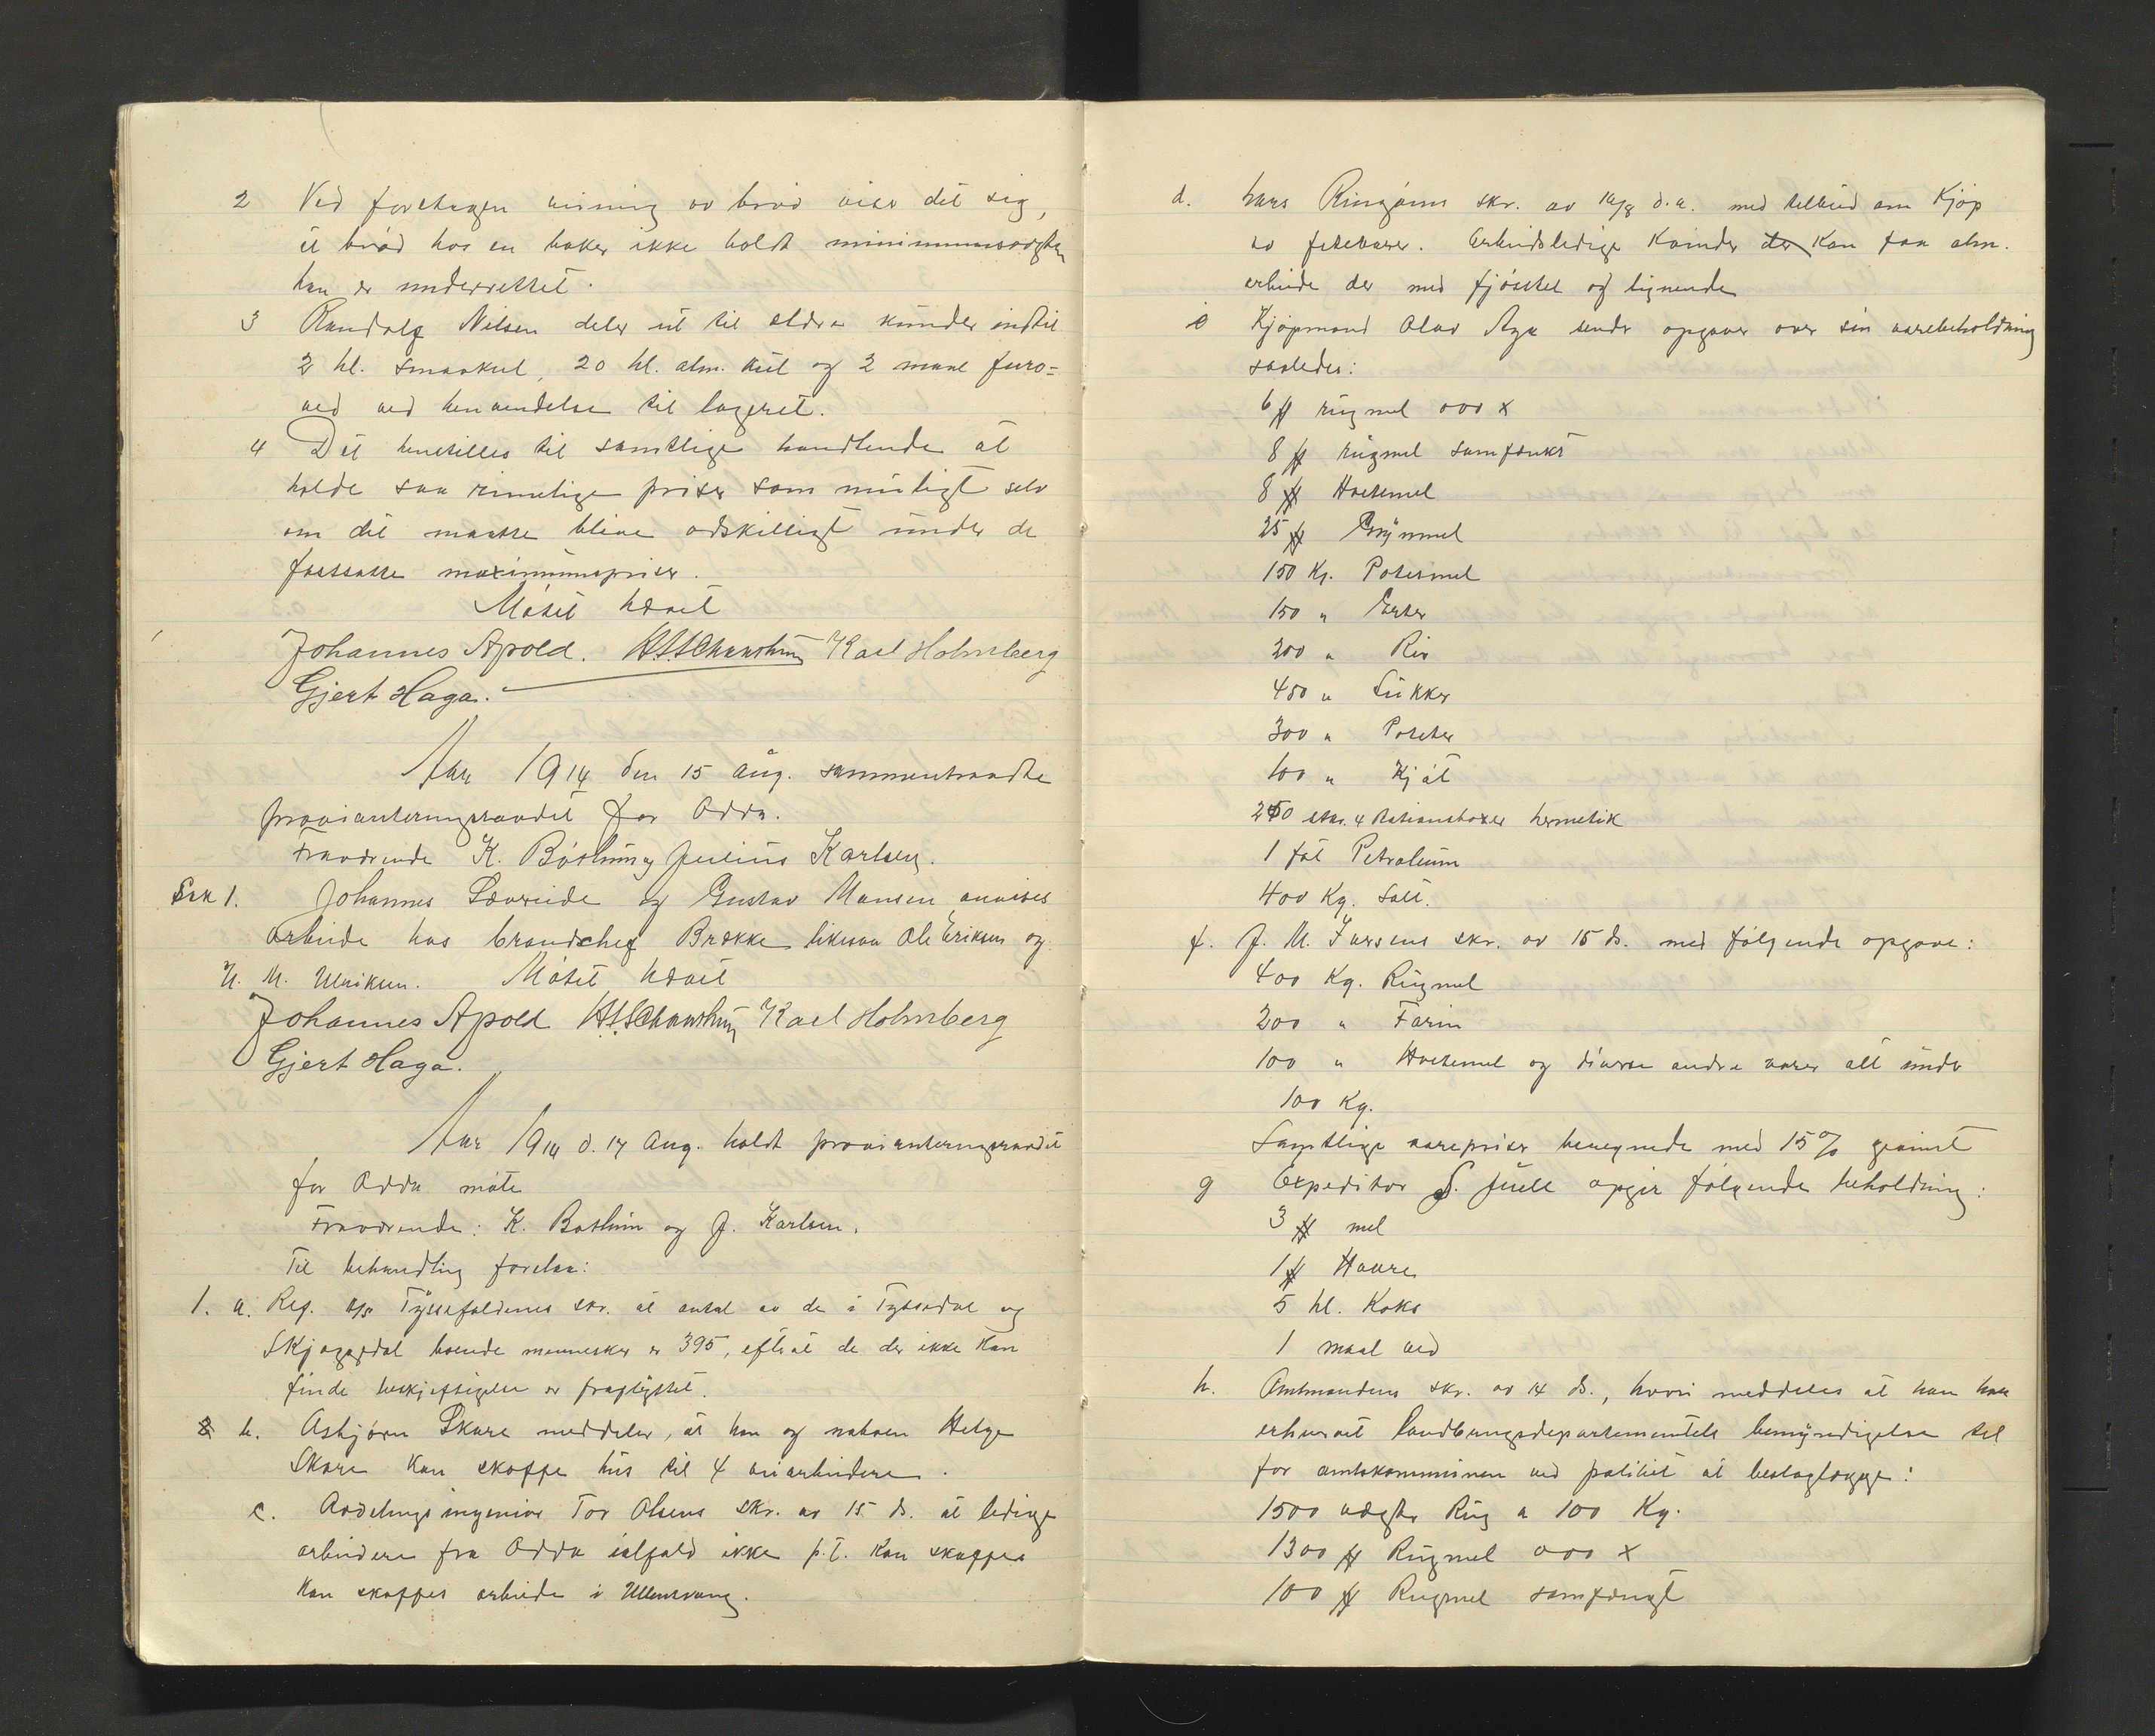 2 Ved foretagen veining av brød viser det sig,
at brød hos en baker ikke holdt minimumsvægten
han er underrettet.
3 Randolf Nilsen deler ut til ældre kunder indtil
2 hl. smaakul, 20 hl. alm. kul og 2 maal furu=
ved ved henvendelse til lageret.
4 Det henstilles til samtlige handlende at
holde saa rimelige priser som muligt selv
om det maatte blive adskilligt under de
fastsatte maximumspriser.
Møtet hævet
Johannes Apold. Karl Holmberg
Gjert Haga.
Aar 1914 den 15 Aug. sammentraadte
provianteringsraadet for Odda.
Fraværende K. Bøthun og Julius Karlsen.
Sak 1. Johannes Sævereide og Gustav Monsen anvises
arbeide hos brandchef Brække likesaa Ole Eriksen og
N. M. Ulriksen. Møtet hævet
Johannes Apold Karl Holmberg
Gjert Haga.
Aar 1914 d. 17 Aug. holdt provianteringsraadet
for Odda møte
Fraværende: K. Bøthun og J. Karlsen.
Til behandling forelaa:
1. a. Ref. A/S Tyssefaldenes skr. at antal av de i Tyssedal og
Skjæggedal boende mennesker er 395, efterat de der ikke kan
finde beskjæftigelse er fraflyttet.
2 b. Asbjørn Skare meddeler, at han og naboen Helge
Skare kan skaffe hus til 4 veiarbeidere.
c. Avdelingsingeniør Tor Olsens skr. av 15 ds. at ledige
arbeidere fra Odda ialfald ikke p.t. kan skaffes
kan skaffes arbeide i Ullensvang.
d. Lars Ringøens skr. av d.a. med tilbud om kjøp
av fetevarer. Arbeidsledige kvinder der kan faa alm.
arbeide der med fjøsstel og lignende
e Kjøpmand Olav Aga sender opgaver over sin varebeholdning
saaledes:
6 # rugmel 000 x
8 # rugmel samfænkt
8 # Hvetemel
25 # Grynmel
150 Kg. Potetmel
150 " Erter
200 " Ris
450 " Sukker
300 " Poteter
100 " Kjøt
250 4 Rationsboxer hermetik
1 fat Petroleum
400 Kg. Salt.
f. J. M. skr. av 15 ds. med følgende opgave:
400 Kg. Rugmel
200 " Farin
100 " Hvetemel og diverse andre varer alt under
100 Kg.
Samtlige varepriser beregnede med 15% gevinst
g Expeditør S. Juell opgir følgende beholdning:
3 # mel
1 # Havre
5 hl. Koks
1 maal ved
h. Amtmandens skr. av 14 ds., hvori meddeles at han har
erhvervet landbrugsdepartementets bemyndigelse til
for amtskommunen ved politiet at beslaglægge:
1500 vægter Rug a 100 Kg.
1300 # Rugmel 000 x
100 # Rugmel samfængt